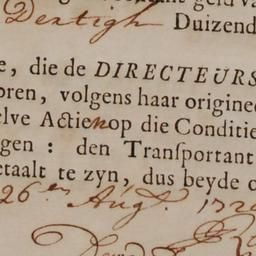 geld va
Dertigh Duizend
e, die de DIRECTEURS
oren, volgens haar originee
elve Actien op die Conditie
gen : den Tranſportant
etaalt te zyn, dus beyde
26 en Augt. 172